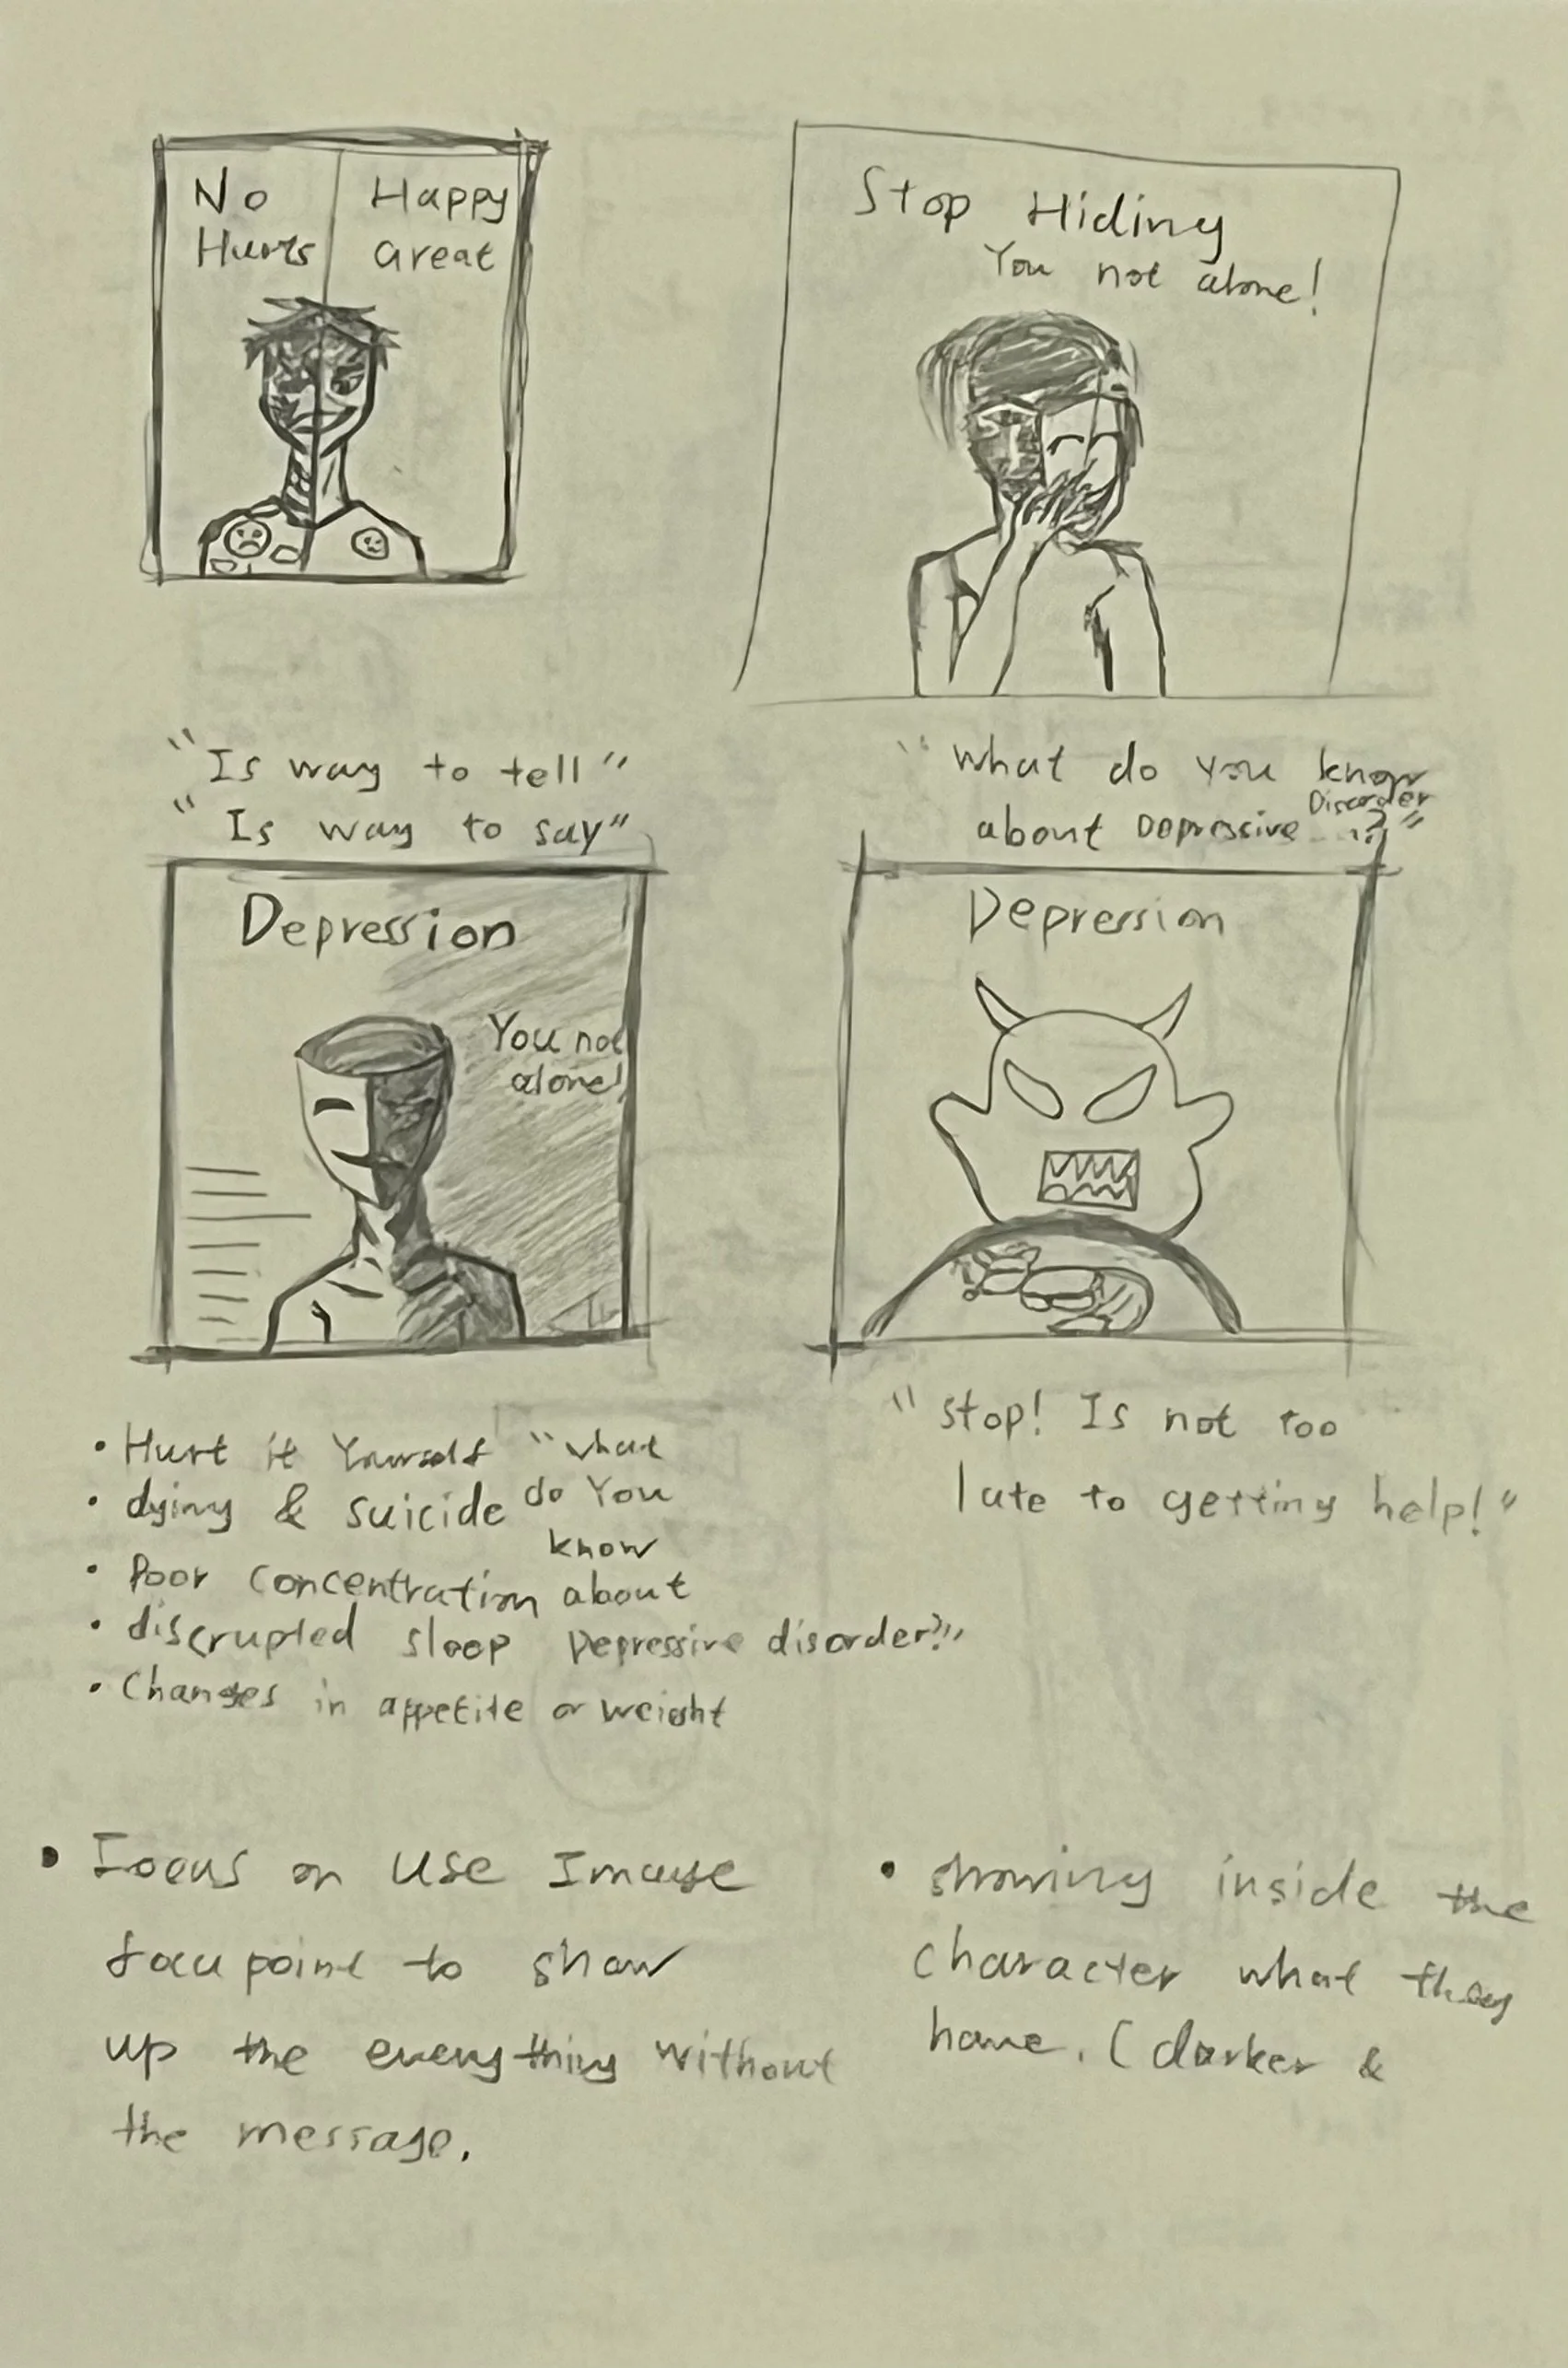 No
Hurts
Happy
Great
Stop Hiding
You not alone!
"Is way to tell"
"Is way to say"
"What do you know
about Depressive Disorder ...?"
Depression
You not
alone!
Depression
"Stop! Is not too
late to getting help!"
• Hurt it Yourself
• dying & suicide
• Poor concentration
• discrupted sleep
• Changes in appetite or weight
"What
do You
know
about
Depressive disorder?"
• Focus on Use Image
point to show
up the everything without
the message.
• showing inside the
character what they
have. (darker &